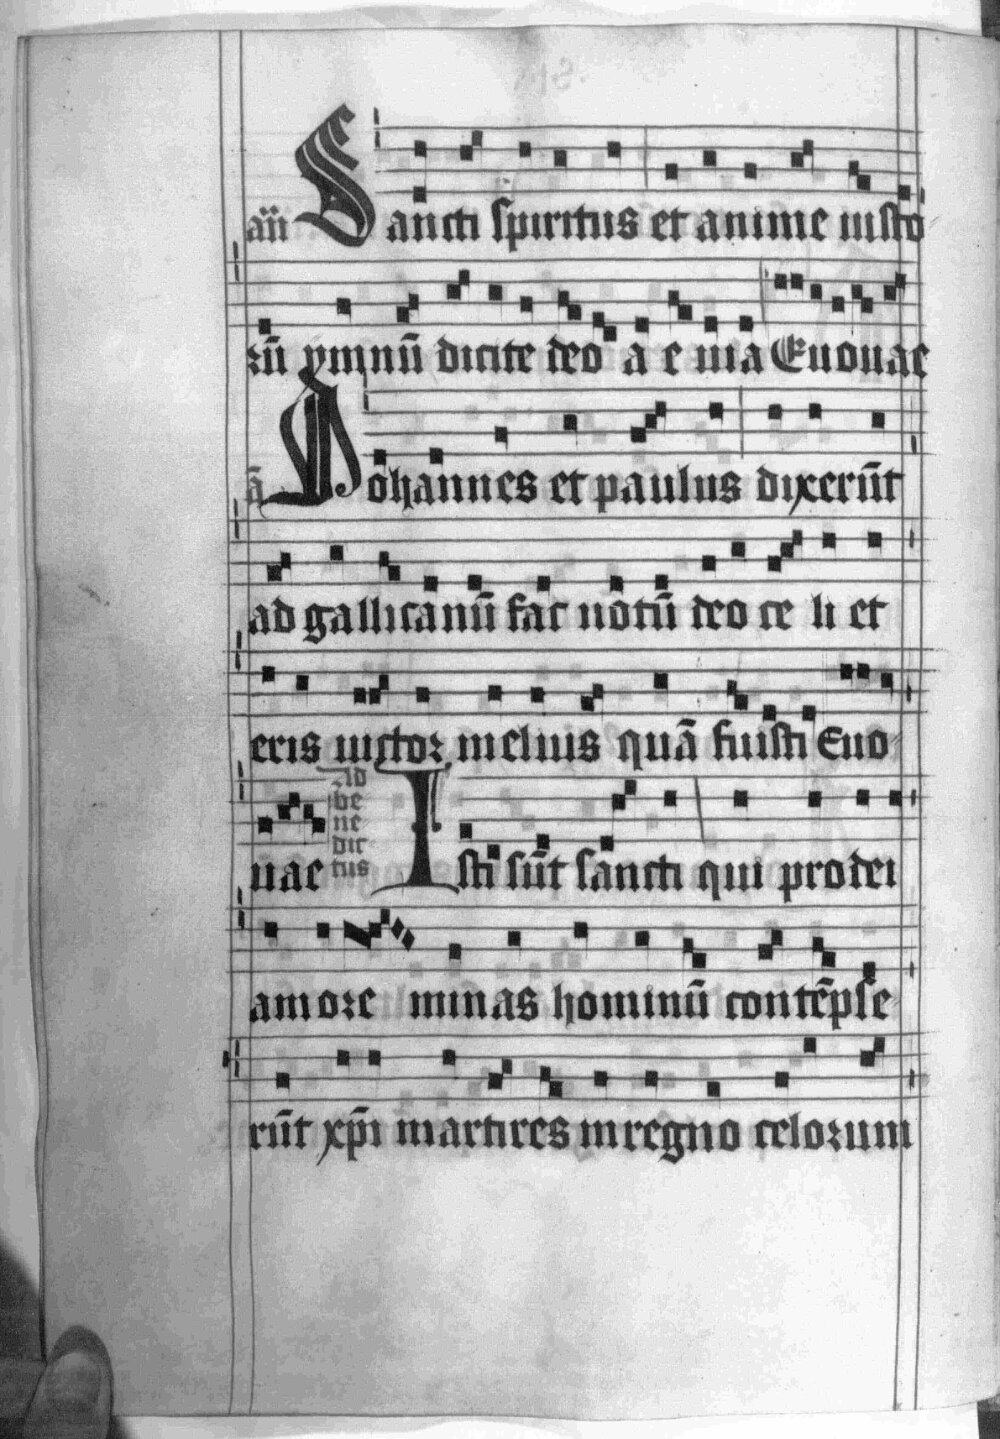 an̄ Sancti spiritus et anime iusto
rū ymnū dicite deo a e uia Euouae
ā Johannes et paulus dixerūt
ad gallicanū fac notū deo celi et
eris uictor melius quā fuisti Euo
uae Ad benedictus Isti sūt sancti qui pro dei
amore minas hominū contēpse
rūt xp̄i martires in regno celorum